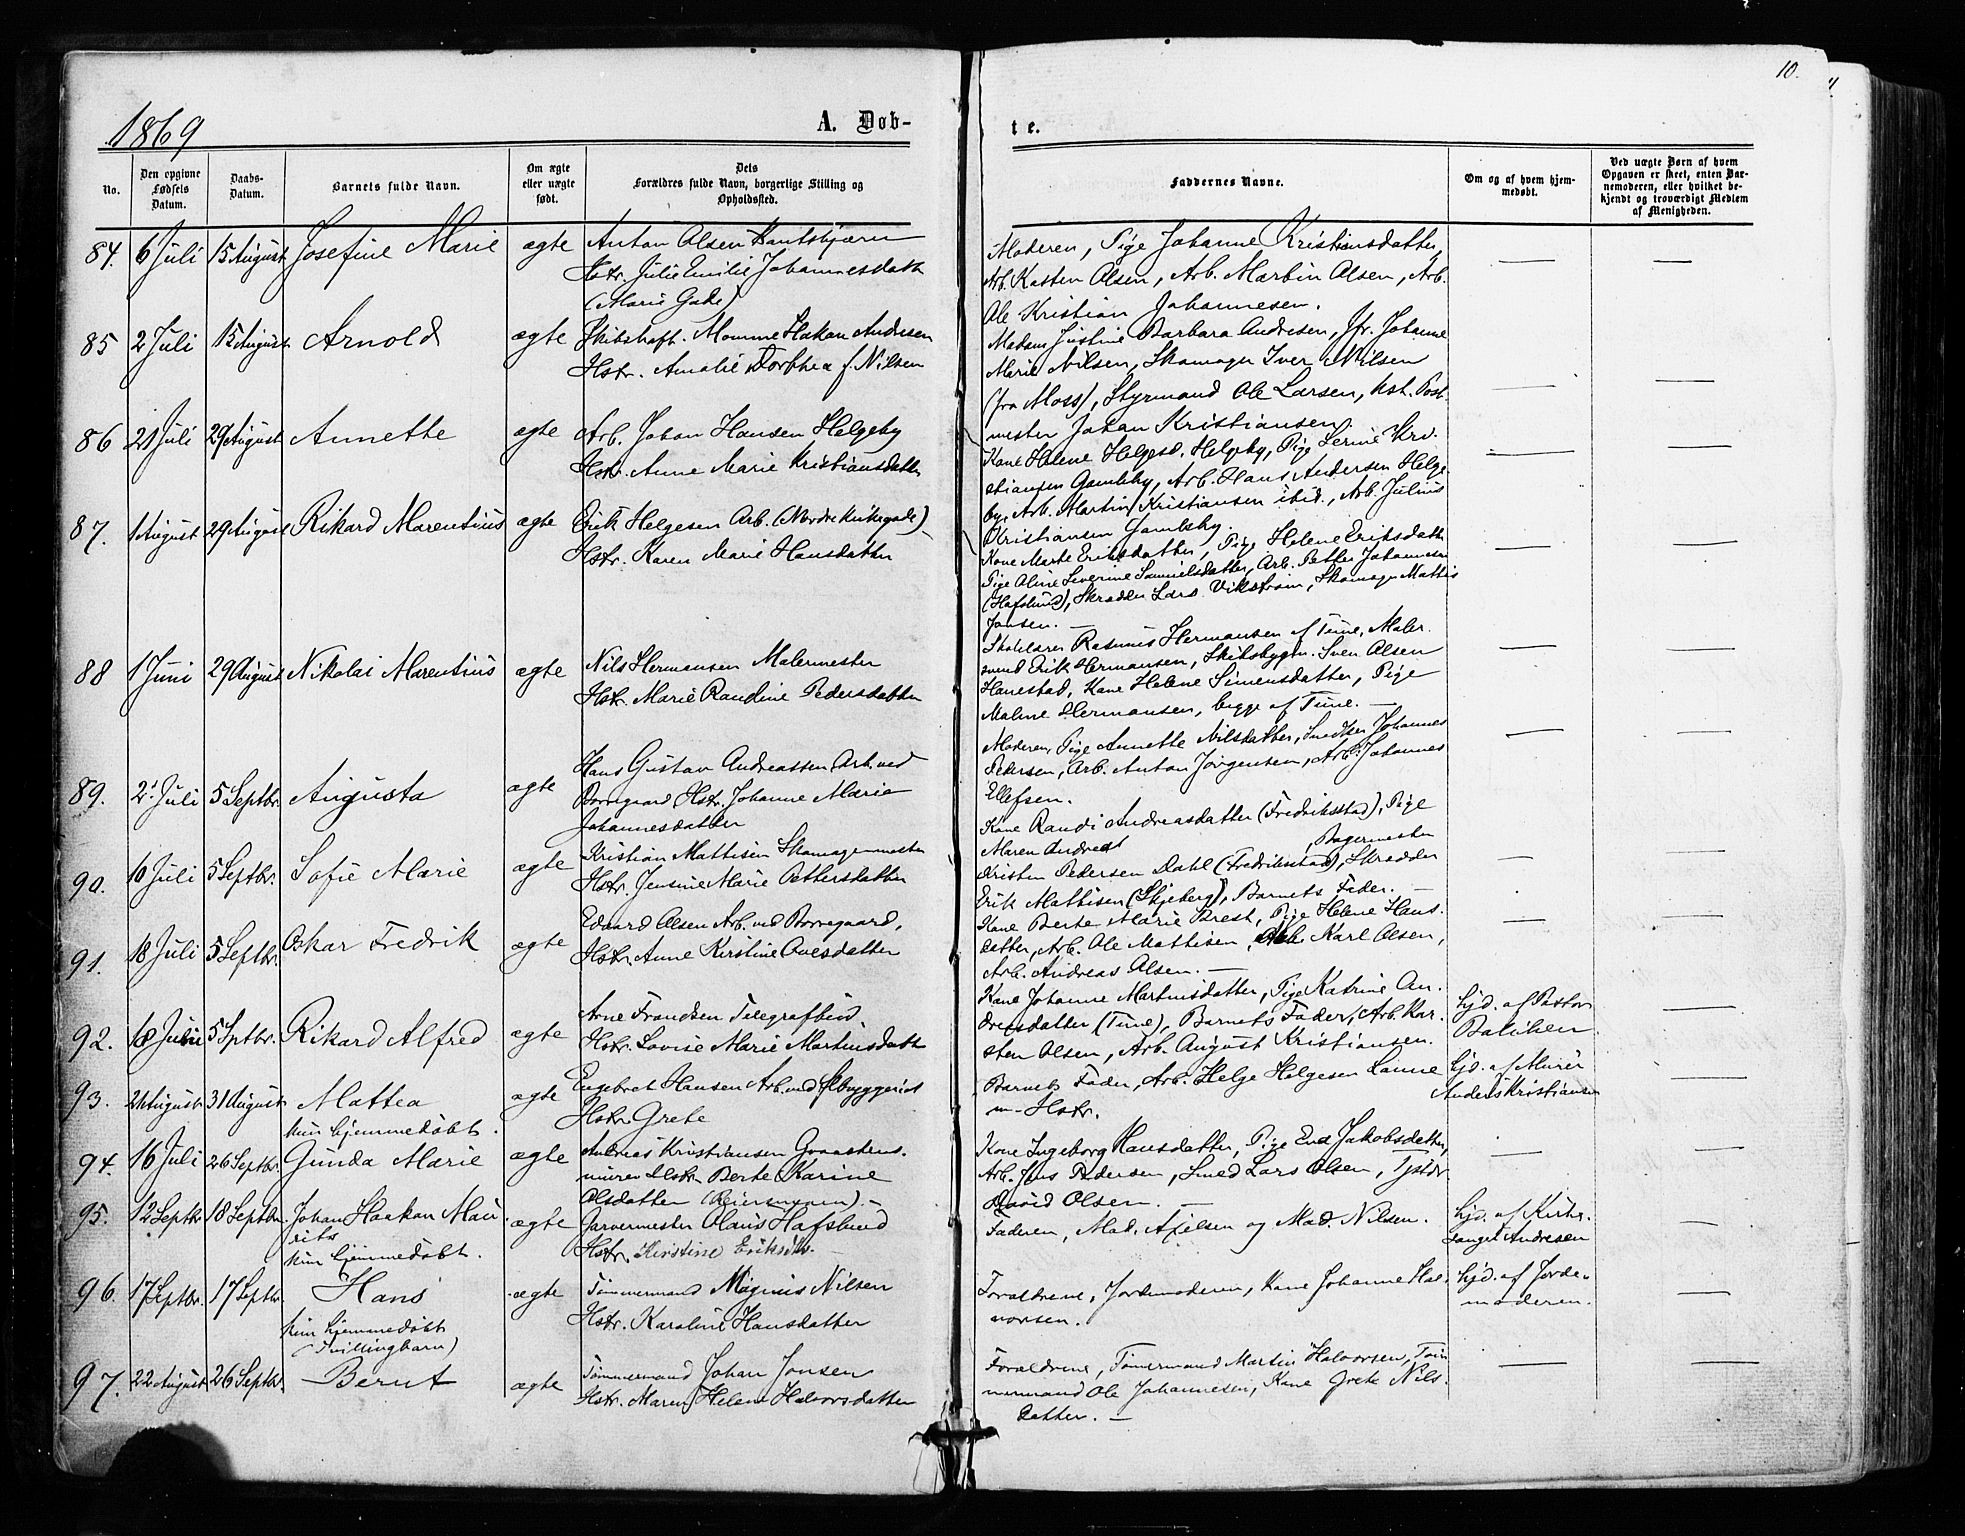 1869
A. Døb-
No.
Den opgivne Fødsels Datum.
Daabs-Datum.
Barnets fulde Navn.
Om ægte eller uægte født.
Dets Forældres fulde Navn, borgerlige Stilling og Opholdssted.
84. 6 Juli 15 August Josefine Marie ægte Anton Olsen
Hstr. Julie Emilie Johannesdatt
(Marie Gade)
85 2 Juli 15 August Arnold ægte Skibskaft. Momme Hakan Andresen
Hstr. Amalie Dorthea f. Nilsen
86 21 Juli 29 August Annette ægte Arb. Johan Hansen Helgeby
Hstr. Anne Marie Kristiansdatter
87. 1 August 29 August Rikard Marentius ægte Erik Helgesen Arb. (Nordre Kirkegade)
Hstr. Karen Marie Hansdatter
88 1 Juni 29 August Nikolai Marentius ægte Nils Hermansen Malermester
Hstr. Marie Randine Pedersdatter
89. 2 Juli 5 Septbr. Augusta ægte Hans Gustav Andreassen Arb. ved
Borregaard Hstr. Johanne Marie
Johannesdatter
90. 10 Juli 5 Septbr. Sofie Marie ægte Kristian Mattisen Skomagermester
Hstr. Jensine Marie Pettersdatter
91. 18 Juli 5 Septbr. Oskar Fredrik ægte Edvard Olsen Arb. ved Borregaard,
Hstr. Anne Kirstine Ovesdatter
92. 18 Juli 5 Sptbr. Rikard Alfred ægte Arne Frandsen Telegrafbud
Hstr. Lovise Marie Martinsdatt
93. 21 August 31 August Mattea ægte Engebret Hansen Arb. ved Ølbryggeriet
kun hjemmedøbt. Hstr. Grete
94. 16 Juli 26 Septbr. Gunda Marie ægte Andreas Kristiansen Graastens-
murer Hstr. Berte Karine
Olsdatter
95. 12 Septbr 18 Septbr. Johan Haakon Mau- ægte Garvermester Olaus Hafslund
ritz
kun hjemmedøbt. Hstr. Kirstine Eriksdtr.
96. 17 Septbr. 17 Septbr Hans ægte Tømmermand Magnus Nilsen
Hstr. Karoline Hansdatter
kun hjemmedøbt
(Tvillingbarn)
97. 22 August 26 Septbr. Bernt ægte Tømmermand Johan Jonsen
Hstr. Maren Helene Halvorsdatter
10.
te.
Faddernes Navne.
Om og af hvem hjemmedøbt.
Ved uægte Børn af hvem Opgaven er skeet, enten Barnemoderen, eller hvilket bekjendt og troværdigt Medlem af Menigheden.
Moderen, Pige Johanne Kristiansdatter,
Arb. Karsten Olsen, Arb. Martin Olsen, Arb.
Ole Kristian Johannesen.
Madam Justine Barbara Andresen, Jfr. Johanne
Marie Nilsen, Skomager Iver Nilsen
(fra Moss), Styrmand Ole Larsen, kst. Post-
mester Johan Kristiansen
Kone Helene Helgesd. Helgeby, Pige Lerine Kri-
stiansen Gamleby, Arb. Hans Andersen Helge-
by, Arb. Martin Kristiansen ibid., Arb. Julius
Kristiansen Gamleby.
Kone Marte Eriksdatter, Pige Helene Eriksdatter
Pige Oline Severine Samuelsdatter, Arb. Petter Johannesen
(Hafslund), Skrædder Lars Vikstrøm, Skomager Mattis
Jonsen.
Skolelærer Rasmus Hermansen af Tune, Maler-
svend Erik Hermansen, Skibsbygm. Sven Olsen
Hanestad, Kone Helene Simensdatter, Pige
Malene Hermansen, begge af Tune.
Moderen, Pige Annette Nilsdatter, Snedker Johannes
Pedersen, Arb. Anton Jørgensen, Arb. Johannes
Ellefsen.
Kone Randi Andreasdatter (Fredriksstad), Pige
Maren Andreas , Bagermester
Kristen Pedersen Dahl (Fredriksstad), Skrædder
Erik Mattisen (Skjeberg), Barnets Fader.
Kone Berte Marie Brest, Pige Helene Hans-
datter, Arb. Ole Mattisen, Arb. Karl Olsen,
Arb. Andreas Olsen.
Kone Johanne Martinsdatter, Pige Katrine An- hjd. af Pastor
dresdatter (Tune), Barnets Fader, Arb. Kar-
sten Olsen, Arb. August Kristiansen.
Barnets Fader, Arb. Helge Helgesen Lanne hjd. af Murer
m. Hstr. Anders Kristiansen
Kone Ingeborg Hansdatter, Pige Eva Jakobsdatter,
Arb. Jens Pedersen, Smed Lars Olsen,
David Olsen.
Faderen, Mad. Axelsen og Mad. Nilsen. hjd. af Kirke-
sanger Andresen
Forældrene, Jordemoderen, Kone Johanne Hal- hjd. af Jorde-
vorsen. moderen.
Forældrene, Tømermand Martin Halvorsen, Tøm-
mermand Ole Johannesen, Kone Grete Nils-
datter.